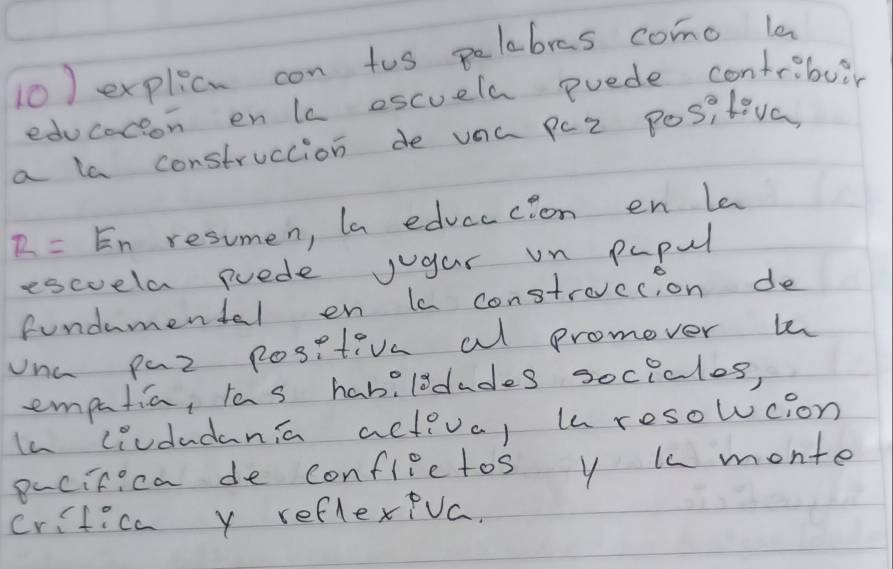 10) explica con tus palabras como la
educación en la escuela puede contribuir
a la construcción de una paz positiva,
R= En resumen, la educacion en la
escuela puede jugar un papel
fundamental en la construccion de
una paz positiva al promover la
empatía, las habilidades sociales,
la ciudadanía activa, la resolucion
pacífica de conflictos y la mente
crítica y reflexiva.